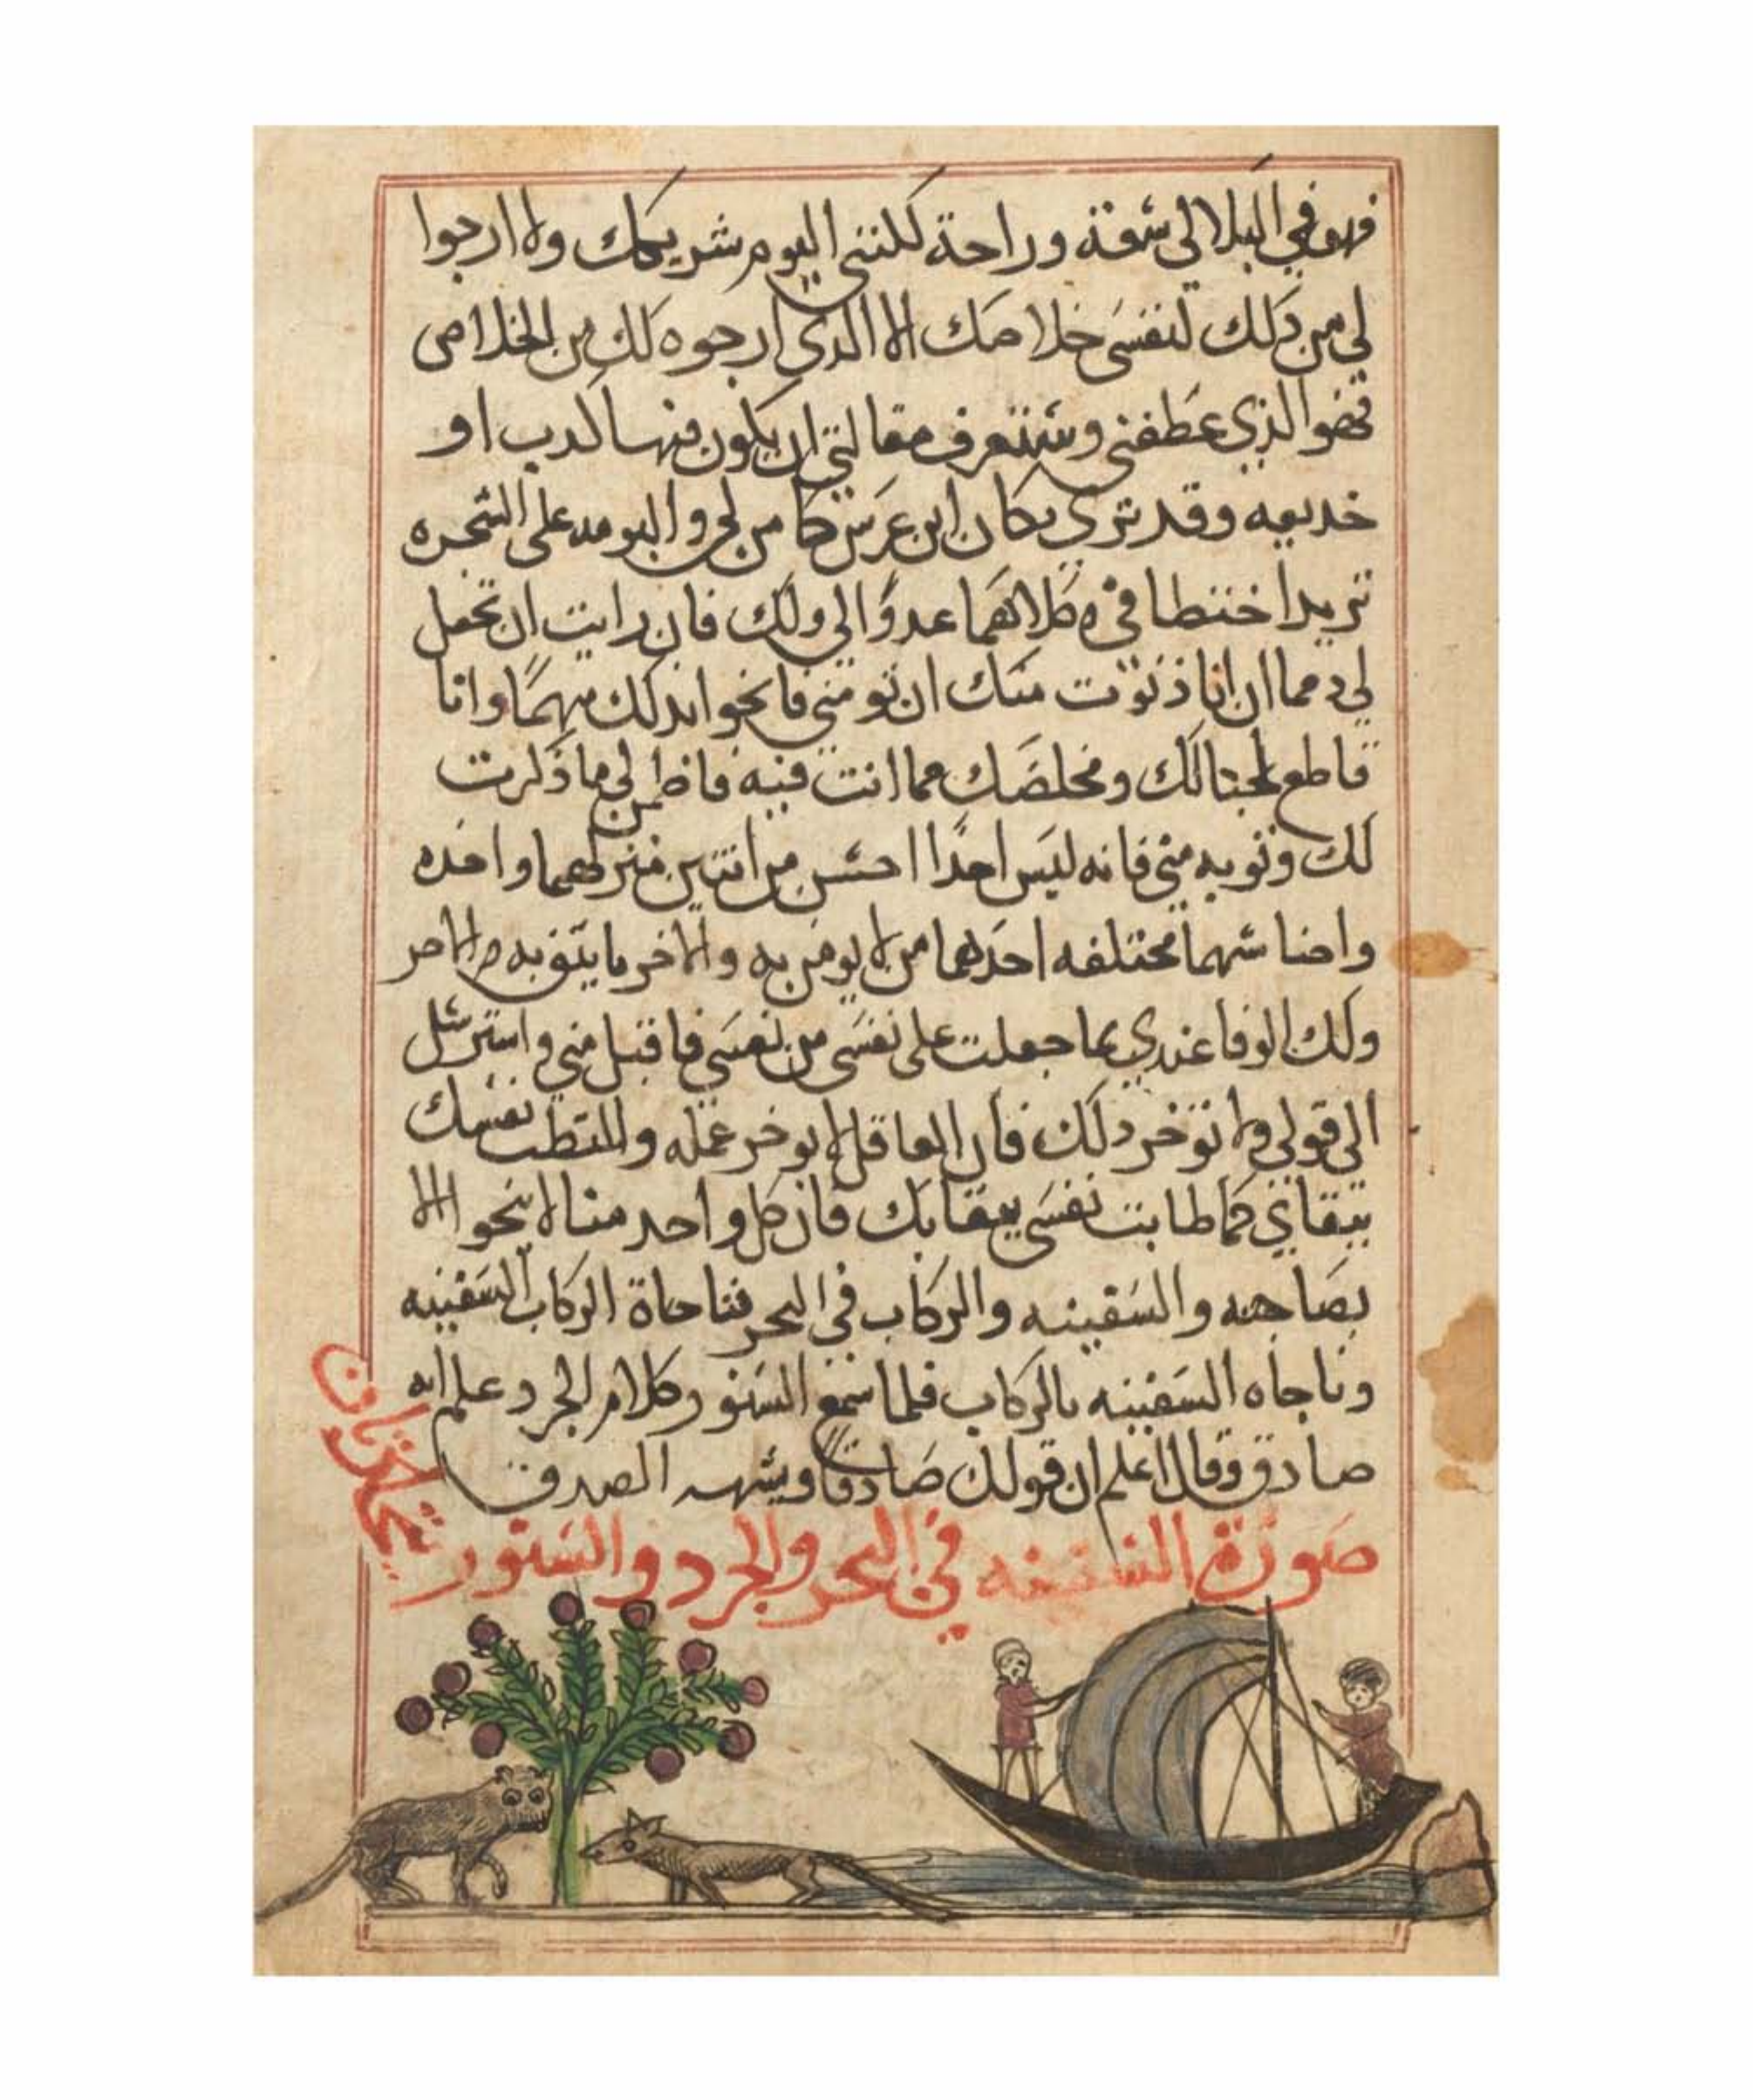 فهو في البلا الي شقة وراحة لكنني اليوم شريكك ولا ارجوا
لي من ذلك لنفسي خلاصك الا الدي ارجوه لك من الخلاص
فهو الذي عطفني وستعرف مقالتي ان يكون فيها كدب او
خديعه وقد تري مكان ابن عرس كامن لي والبومه علي الشجره
تريد اختطافي وكلاهما عدوا لي ولك فان رايت ان تجعل
لي دمما ان انا دنوت منك ان تومني فانجوا بدلك منهما وانا
قاطع لحبالك ومخلصك مما انت فيه فاطمن لي ما ذكرت
لك وتوبه مني فانه ليس احدا احسن من اتنين منزلهما واحده
واضا شهما مختلفه احدهما من لا يومن به والاخر ما يتق به
ولك الوفا عندي بما جعلت علي نفسي من نفسي فاقبل مني واسترسل
الي قولي ولا توخر دلك فان العاقل لا يوخر عمله نفسك
ببقاي كما طابت نفسي ببقايك فان كل واحد منا لا ينجوا الا
بصاحبه والسفينه والركاب في البحر فنا حاة الركاب السفينه
ونا جاه السفينه بالركاب فلما سمع السنور كلام الجرد علم انه
صادق وقال اعلم ان قولك صادقا ويشبه الصدق
صورة السفينه في البحر والجرد والسنور